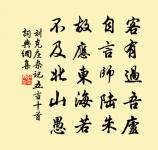 客有過吾廬
自言師陸朱
故應東海若
不及北山愚
劉克庄杂记五言十首
詞典網集